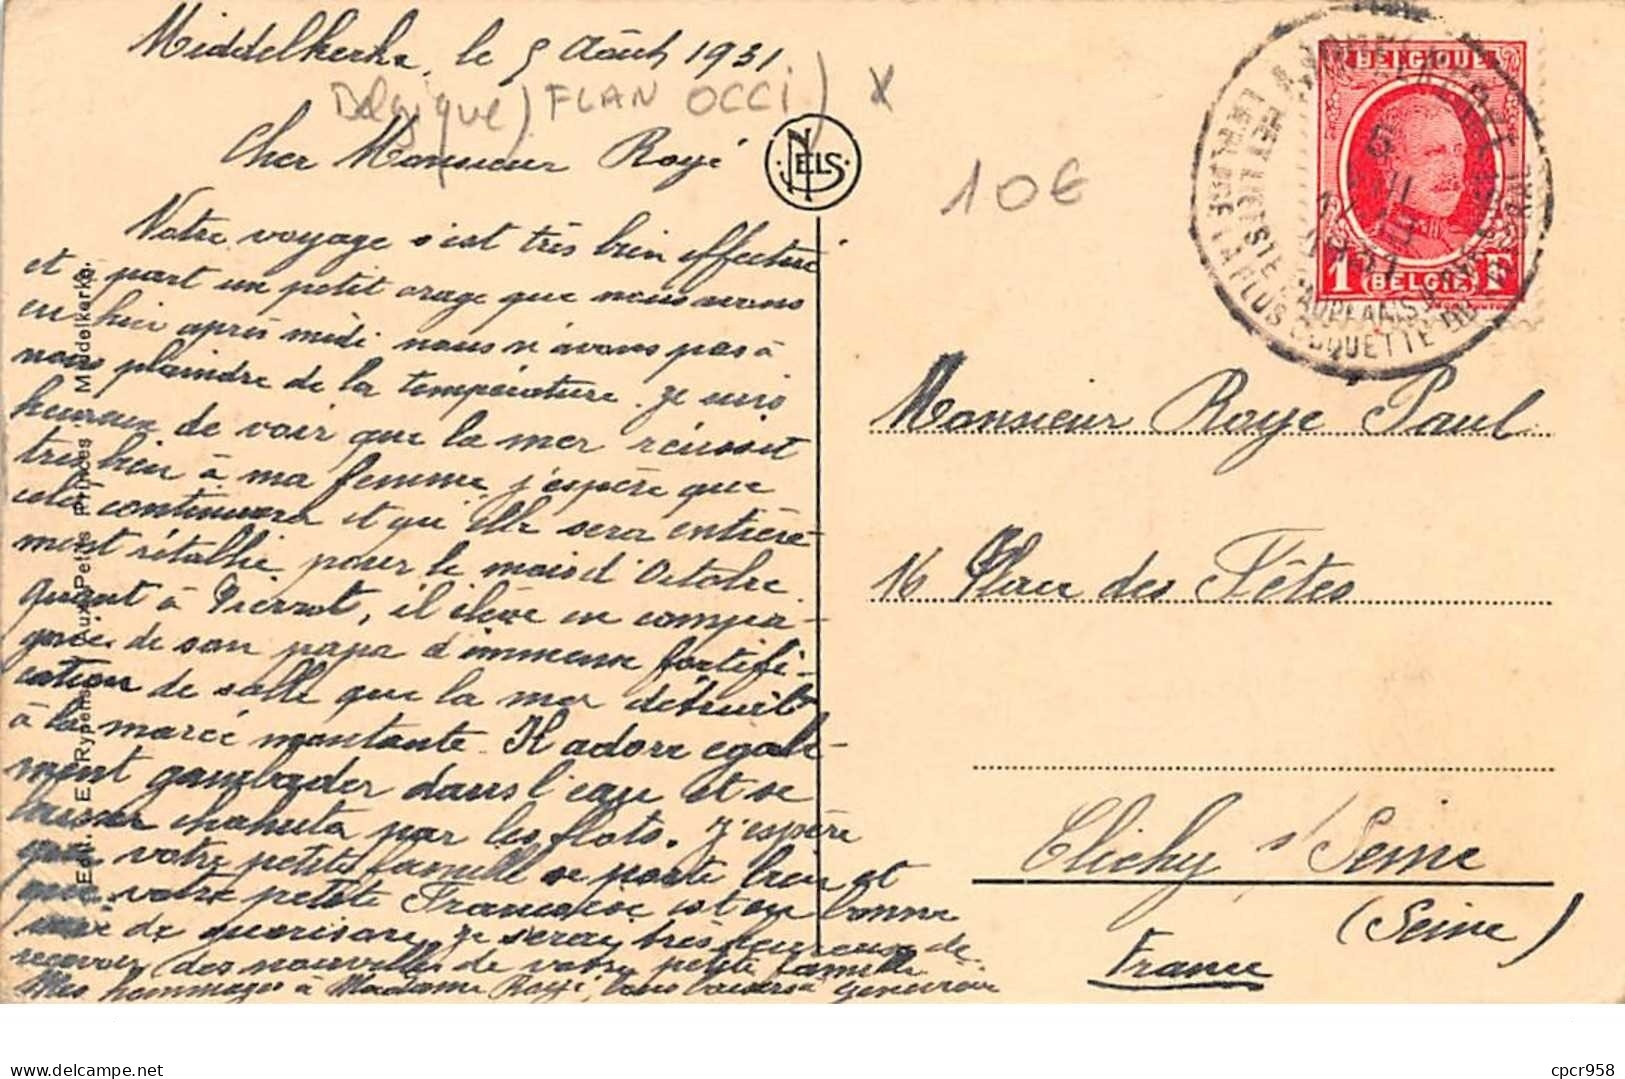 Middelkerke, le 5 Août 1931
Belgique) FLAN OCCI) X
Cher Monsieur Royé
NELS
10€
Notre voyage s'est très bien effectué
et à part un petit orage que nous avons
eu hier après midi nous n'avons pas à
nous plaindre de la température. Je suis
heureux de voir que la mer réussit
très bien à ma femme, j'espère que
cela continuera et qu'elle sera entière-
ment rétablie pour le mois d'Octobre.
Quant à Pierrot, il élève en compa-
gnie de son papa d'immense fortifi-
cation de sable que la mer détruit
à la marée montante. Il adore égale-
ment gambader dans l'eau et se
laisser chahuter par les flots. J'espère
que votre petite famille se porte bien et
que votre petite Françoise est en bonne
voie de guérison, je serai très heureux de
recevoir des nouvelles de votre petite famille
Mes hommages à Madame Royé, bons baisers à Geneviève
Edit. E. Rypens, Aux Petits Princes, Middelkerke.
BELGIQUE
1 F
(BELGIË)
LA PLUS COQUETTE
Monsieur Roye Paul
16 Place des Fêtes
Clichy s/ Seine
(Seine)
France
cpcr958